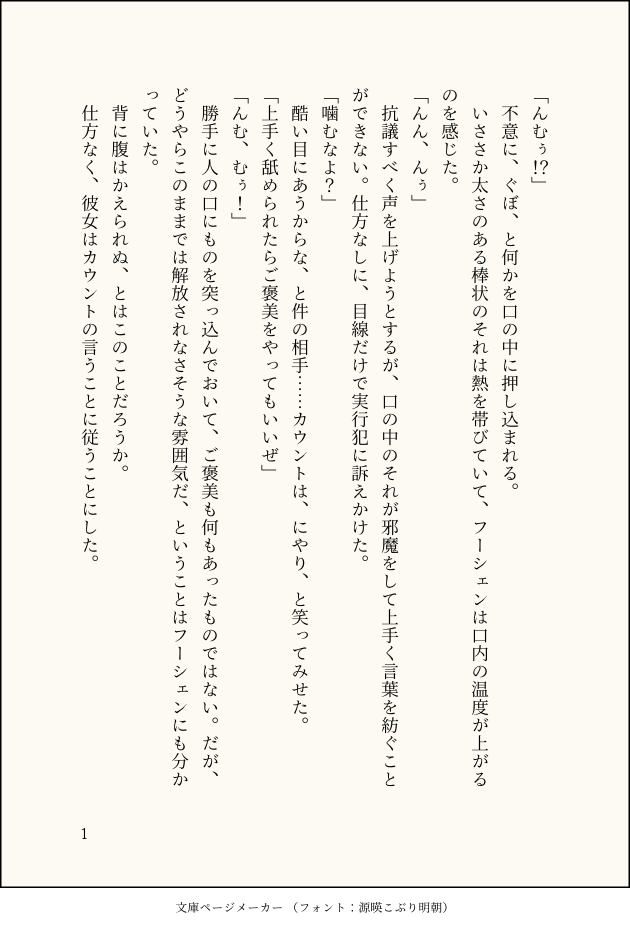 「んむぅ!?」
　不意に、ぐぼ、と何かを口の中に押し込まれる。
　いささか太さのある棒状のそれは熱を帯びていて、フーシェンは口内の温度が上がる
のを感じた。
「んん、んぅ」
　抗議すべく声を上げようとするが、口の中のそれが邪魔をして上手く言葉を紡ぐこと
ができない。仕方なしに、目線だけで実行犯に訴えかけた。
「噛むなよ？」
　酷い目にあうからな、と件の相手……カウントは、にやり、と笑ってみせた。
「上手く舐められたらご褒美をやってもいいぜ」
「んむ、むぅ！」
　勝手に人の口にものを突っ込んでおいて、ご褒美も何もあったものではない。だが、
どうやらこのままでは解放されなさそうな雰囲気だ、ということはフーシェンにも分か
っていた。
　背に腹はかえられぬ、とはこのことだろうか。
　仕方なく、彼女はカウントの言うことに従うことにした。
1
文庫ページメーカー （フォント：源暎こぶり明朝）